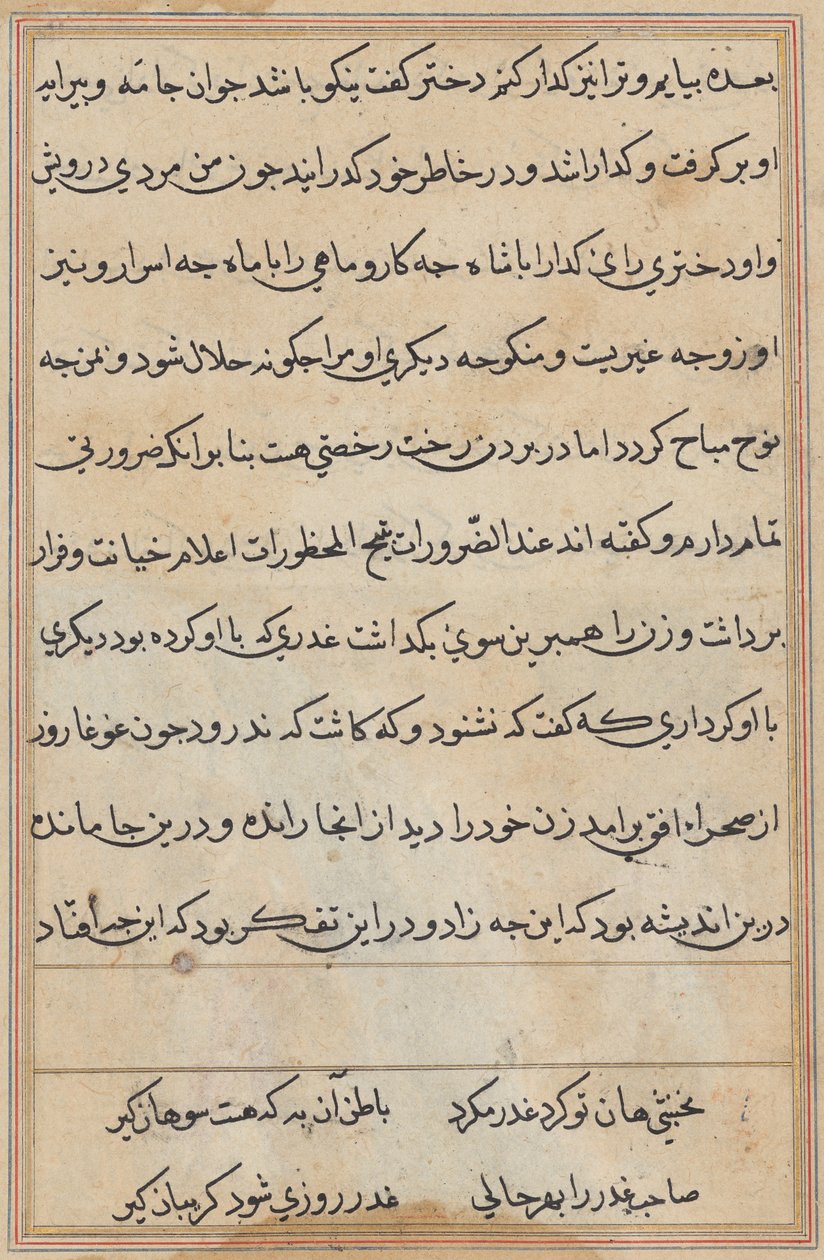 بعده بیایم و ترا نیز کدار کنم دختر کفت نیکو باشد جوان جامه و پیرایه
او بر کرفت و کدارا شد و در خاطر خود کدرانید جون من مردی درویش
و او دختری رای کدارا با شاه جه کار و ماهی را با ماه جه اسرار و نیز
او زوجه غیریست و منکوحه دیکری او مرا جکونه حلال شود و بمن جه
نوح مباح کردد اما در بردن رخت رخصتی هست بنا بر انک ضرورتی
تمام دارم و کفته اند عند الضّرورات تبیح المحظورات اعلام خیانت و فرار
برداشت و زن را همبرین سوی بکداشت غدری که با او کرده بود دیکری
با او کرداری که کفت که نشنود و که کاشت که ندرود جون غوغا روز
از صحراء افق برامد زن خود را دید از انجا رانده و درین جا مانده
درین اندیشه بود که این جه زاد و در این تفکر بود که این جه افتاد
نخشبی هان تو کرد غدر مکرد باطن آن به که هست سوهان کیر
صاحب غدر را بهر حالی غدر روزی شود کریبان کیر